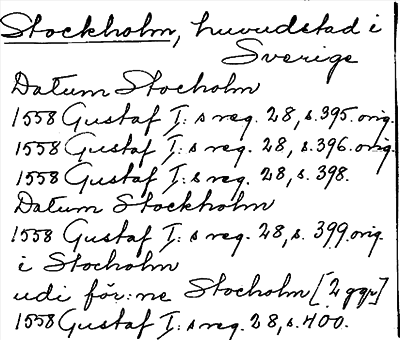 Stockholm, huvudstad i
Sverige
Datum Stocholm
1558 Gustaf I: s reg. 28, s. 395. orig.
1558 Gustaf I: s reg. 28, s. 396. orig.
1558 Gustaf I: s reg. 28, s. 398.
Datum Stockholm
1558 Gustaf I: s reg. 28, s. 399. orig.
i Stocholm
udi för: ne Stocholm [2 ggr]
1558 Gustaf I: s reg. 28, s. 400.